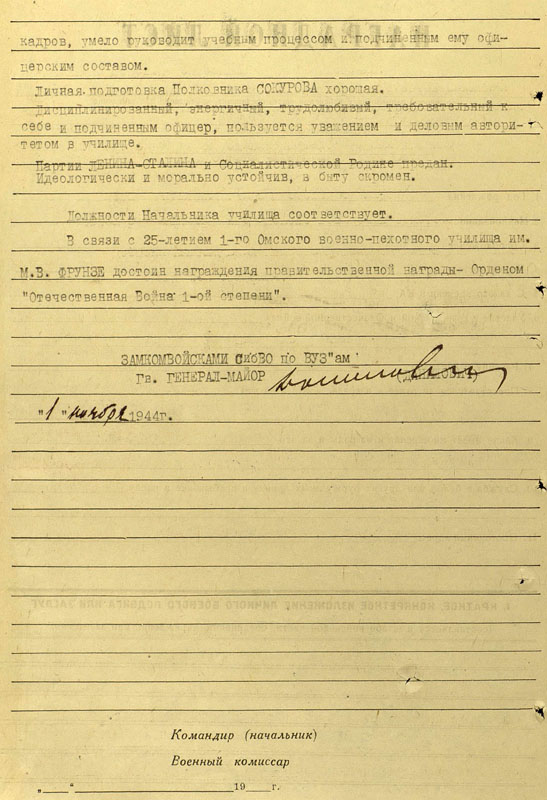 кадров, умело руководит учебным процессом и подчиненным ему офи-
церским составом.
Личная подготовка Полковника СОКУРОВА хорошая.
Дисциплинированный, энергичный, трудолюбивый, требовательный к
себе и подчиненным офицер, пользуется уважением и деловым автори-
тетом в училище.
Партии ЛЕНИНА-СТАЛИНА и Социалистической Родине предан.
Идеологически и морально устойчив, в быту скромен.
Должности Начальника училища соответствует.
В связи с 25-летием 1-го Омского военно-пехотного училища им.
М.В. ФРУНЗЕ достоин награждения правительственной награды- Орденом
"Отечественная Война 1-ой степени".
ЗАМКОМВОЙСКАМИ СибВО по ВУЗ"ам
Гв. ГЕНЕРАЛ-МАЙОР
"1" ноября 1944г.
Командир (начальник)
Военный комиссар
„ “ 19 г.